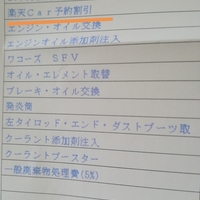 楽天Ｃａｒ予約割引
エンジン・オイル交換
エンジンオイル添加剤注入
ワコーズ　ＳＦＶ
オイル・エレメント取替
ブレーキ・オイル交換
発炎筒
左タイロッド・エンド・ダストブーツ取
クーラント添加剤注入
クーラントブースター
一般廃棄物処理費(5%)